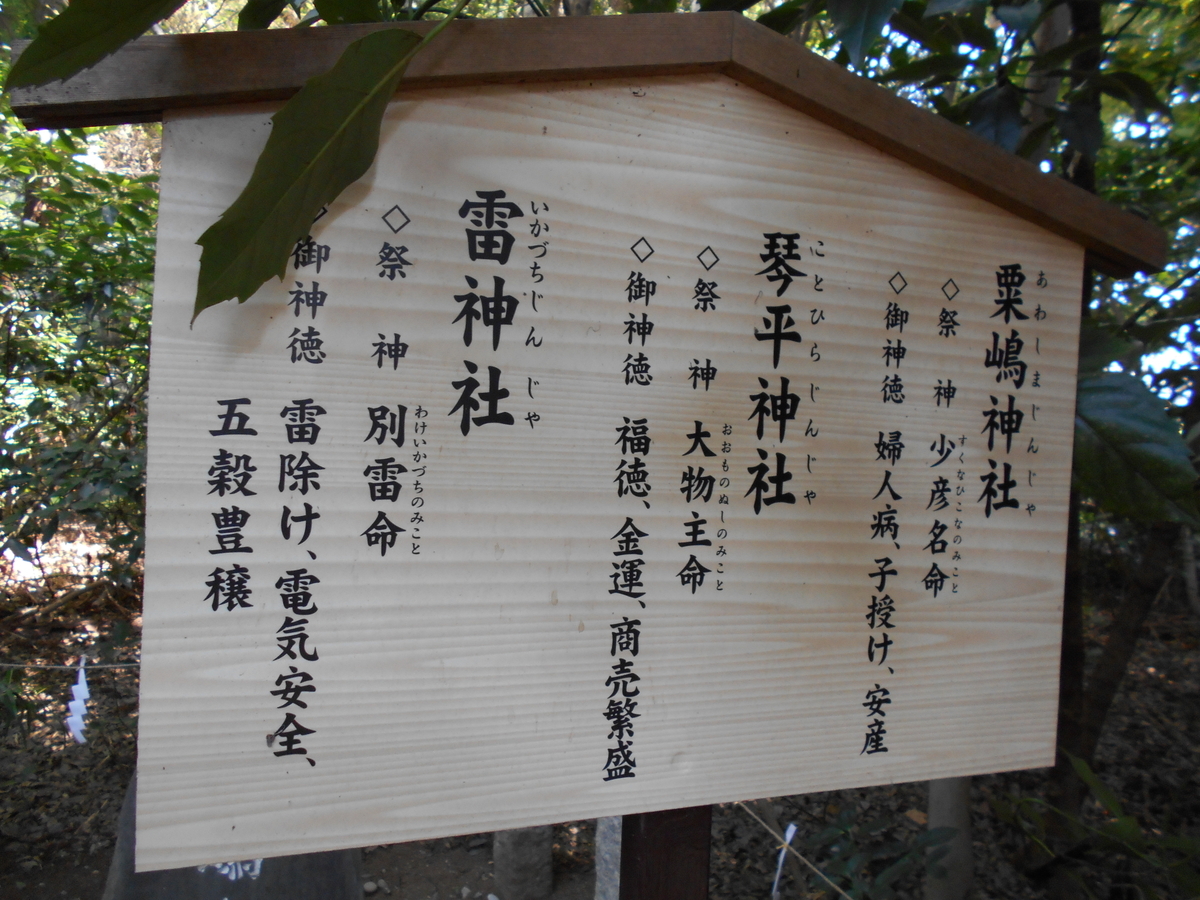 あわしまじんじや
粟嶋神社
すくなひこなのみこと
◇祭　神　少彦名命
◇御神徳　婦人病、子授け、安産
ことひらじんじや
琴平神社
おおものぬしのみこと
◇祭　神　大物主命
◇御神徳　福徳、金運、商売繁盛
いかづちじんじや
雷神社
わけいかづちのみこと
◇祭　神　別雷命
◇御神徳　雷除け、電気安全、
五穀豊穣